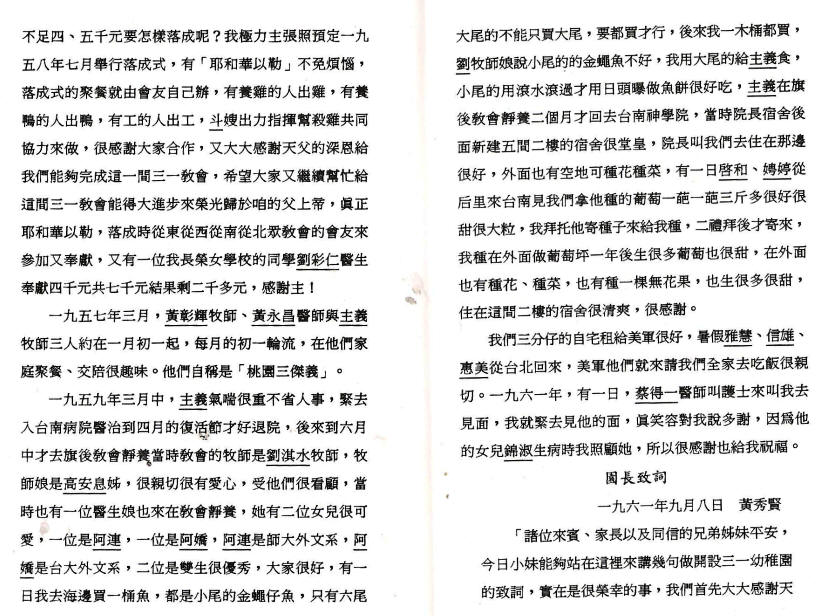 不足四、五千元要怎樣落成呢？我極力主張照預定一九
五八年七月舉行落成式，有「耶和華以勒」不免煩惱，
落成式的聚餐就由會友自己辦，有養雞的人出雞，有養
鴨的人出鴨，有工的人出工，斗嫂出力指揮幫殺雞共同
協力來做，很感謝大家合作，又大大感謝天父的深恩給
我們能夠完成這一間三一教會，希望大家又繼續幫忙給
這間三一教會能得大進步來榮光歸於咱的父上帝，眞正
耶和華以勒，落成時從東從西從南從北眾教會的會友來
參加又奉獻，又有一位我長榮女學校的同學劉彩仁醫生
奉獻四千元共七千元結果剩二千多元，感謝主！
一九五七年三月，黃彰輝牧師、黃永昌醫師與主義
牧師三人約在一月初一起，每月的初一輪流，在他們家
庭聚餐、交陪很趣味。他們自稱是「桃園三傑義」。
一九五九年三月中，主義氣喘很重不省人事，緊去
入台南病院醫治到四月的復活節才好退院，後來到六月
中才去旗後教會靜養當時教會的牧師是劉淇水牧師，牧
師娘是高安息姊，很親切很有愛心，受他們很看顧，當
時也有一位醫生娘也來在教會靜養，她有二位女兒很可
愛，一位是阿連，一位是阿嬌，阿連是師大外文系，阿
嬌是台大外文系，二位是雙生很優秀，大家很好，有一
日我去海邊買一桶魚，都是小尾的金蠅仔魚，只有六尾
大尾的不能只買大尾，要都買才行，後來我一木桶都買，
劉牧師娘說小尾的的金蠅魚不好，我用大尾的給主義食，
小尾的用滾水滾過才用日頭曝做魚餅很好吃，主義在旗
後教會靜養二個月才回去台南神學院，當時院長宿舍後
面新建五間二樓的宿舍很堂皇，院長叫我們去住在那邊
很好，外面也有空地可種花種菜，有一日啓和、娉婷從
后里來台南見我們拿他種的葡萄一葩一葩三斤多很好很
甜很大粒，我拜托他寄種子來給我種，二禮拜後才寄來，
我種在外面做葡萄坪一年後生很多葡萄也很甜，在外面
也有種花、種菜，也有種一棵無花果，也生很多很甜，
住在這間二樓的宿舍很清爽，很感謝。
我們三分仔的自宅租給美軍很好，暑假雅慧、信雄、
惠美從台北回來，美軍他們就來請我們全家去吃飯很親
切。一九六一年，有一日，蔡得一醫師叫護士來叫我去
見面，我就緊去見他的面，眞笑容對我說多謝，因爲他
的女兒錦淑生病時我照顧她，所以很感謝也給我祝福。
園長致詞
一九六一年九月八日　黃秀賢
「諸位來賓、家長以及同信的兄弟姊妹平安，
今日小妹能夠站在這裡來講幾句做開設三一幼稚園
的致詞，實在是很榮幸的事，我們首先大大感謝天